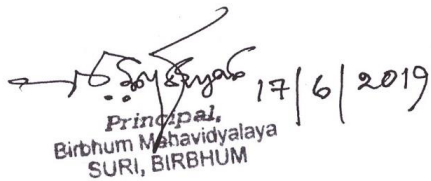 17/6/2019
Principal,
Birbhum Mahavidyalaya
SURI, BIRBHUM